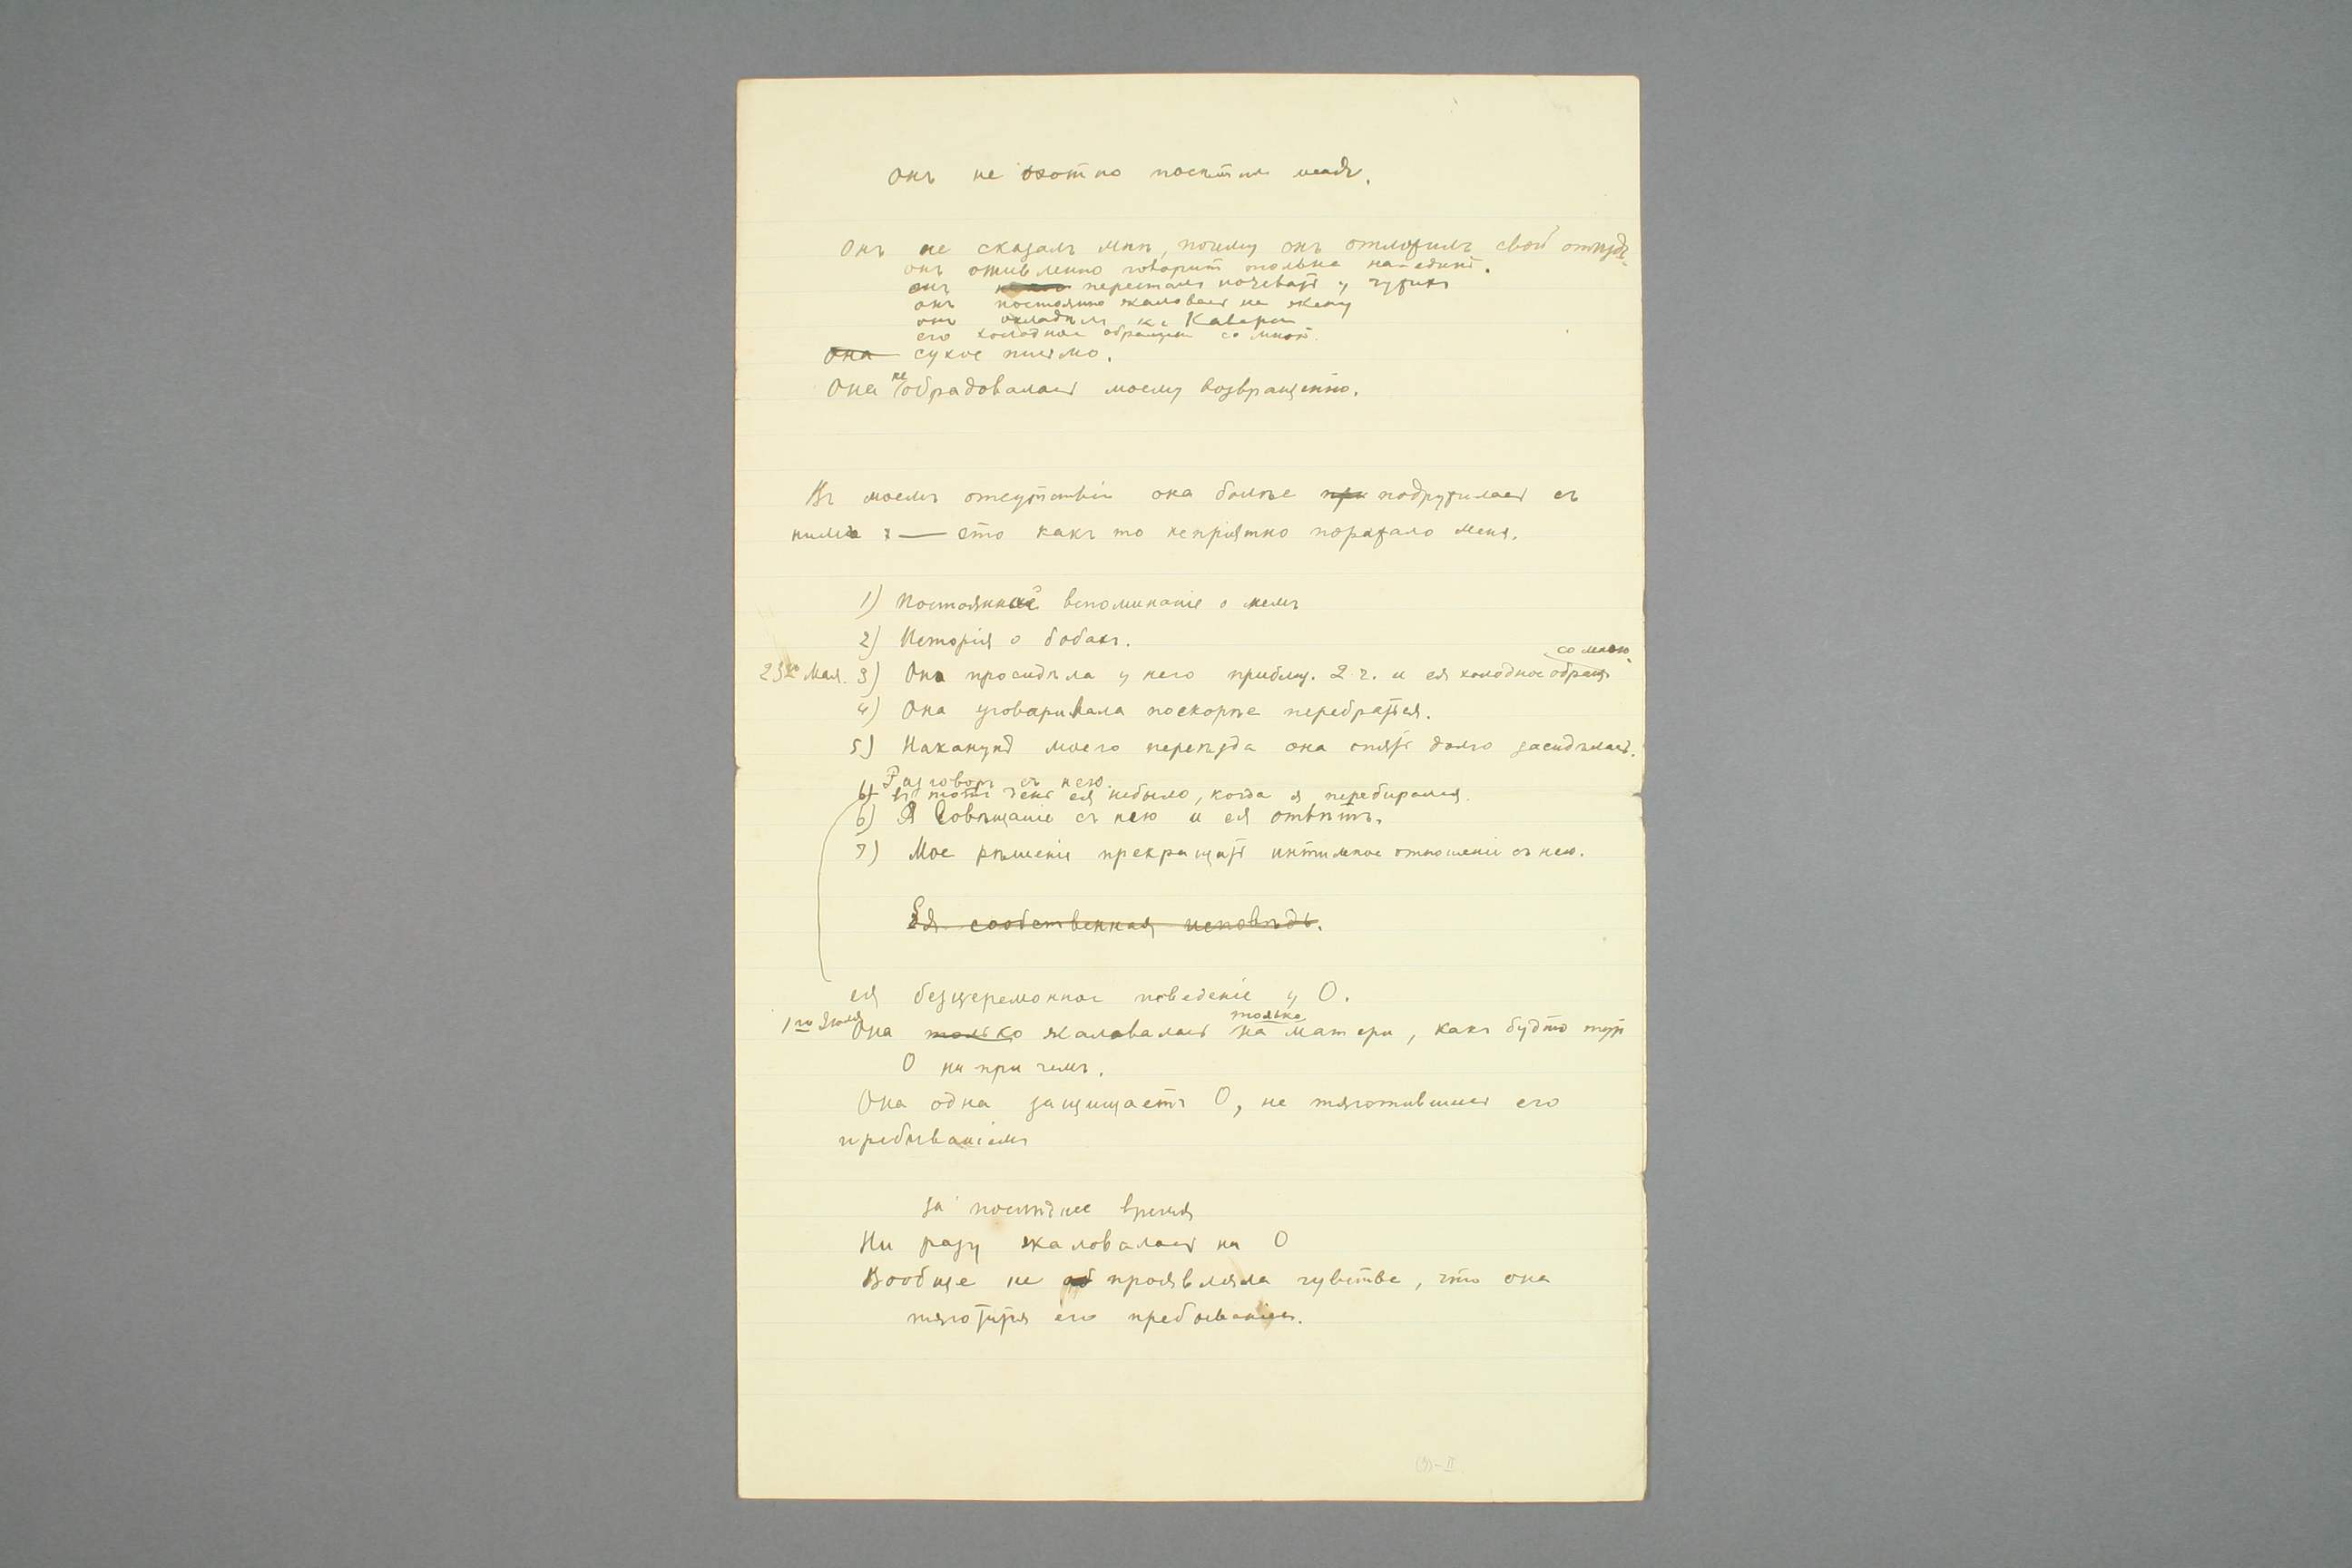 Онъ не охотно посѣтилъ меня.
Онъ не сказалъ мнѣ, почему онъ отложилъ свой отъѣздъ
онъ оживленно говоритъ только на-единѣ.
онъ пересталъ ночевать у чужихъ
онъ постоянно жаловался на жену
онъ охладѣлъ къ
его холодное обращеніе со мной.
Она сухое письмо.
Она не обрадовалась моему возвращенію.
Въ моемъ отсутствіи она болѣе при подружилась съ
нимъ : — это какъ то непріятно поражало меня.
1) Постоянное вспоминаніе о немъ
2) Исторія о бобахъ.
со мною.
23го Мая. 3) Она просидѣла у него приблиз. 2 ч. и ея холодное обращ.
4) Она уговаривала поскорѣе перебраться.
5) Наканунѣ моего переѣзда она опять долго засидѣлась.
Разговоръ съ нею.
6) въ тотъ день ея небыло, когда я перебирался.
6) Я Совѣщаніе съ нею и ея отвѣтъ.
7) Мое рѣшеніе прекращать интимное отношеніе съ нею.
Ея сообственная исповѣдь.
ея безцеремонное поведеніе у О.
только
1го Іюля Она только жаловалась на матери, какъ будто тутъ
О ни при чемъ.
Она одна защищаетъ О, не тяготившись его
пребываніемъ
за послѣднее время
Ни разу жаловалась на О
Вообще не об проявляла чувства, что она
тяготится его пребываніемъ.
(4)-II